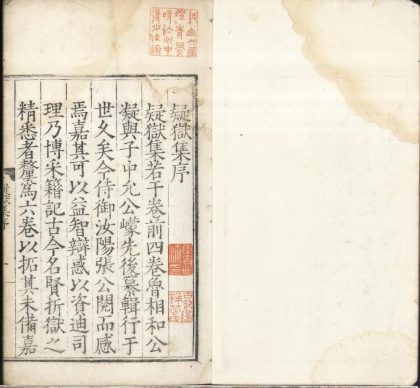 疑獄集序
疑獄集若干卷前四卷魯相和公
凝與子中允公㠓先後纂輯行于
世久矣今侍御汝陽張公閱而感
焉嘉其可以益智辯惑以資迪司
理乃博采籍記古今名賢折獄之
精悉者釐爲六卷以拓其未備嘉